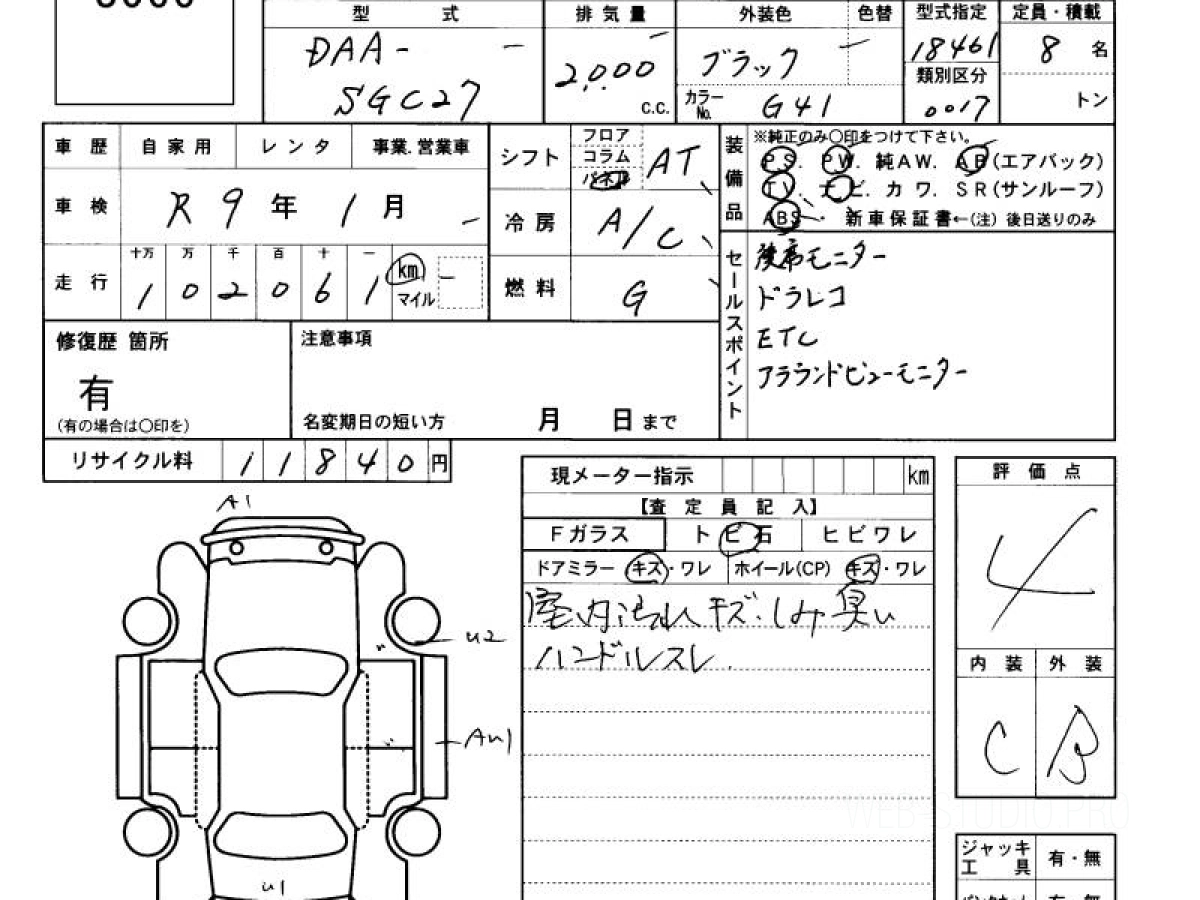 型 式 排気量 外装色 色替 型式指定 定員・積載
DAA- - - ブラック - 18461 8 名
SGC27 2,000 c.c. カラーNo. G41 類別区分 0017 トン
車歴 自家用 レンタ 事業.営業車
シフト フロア コラム パネル AT
車検 R 9 年 1 月 -
冷房 A/C
走行 十万 万 千 百 十 一
1 0 2 0 6 1 km マイル -
燃料 G
装備品 ※純正のみ〇印をつけて下さい。
PS. PW. 純AW. AB(エアバック)
TV. ナビ. カワ. SR(サンルーフ)
ABS. 新車保証書←(注) 後日送りのみ
セールスポイント
後席モニター
ドラレコ
ETC
アラウンドビューモニター
修復歴 箇所
有
(有の場合は〇印を)
注意事項
名変期日の短い方 月 日まで
リサイクル料 11840円
現メーター指示 km
【査定員記入】
Fガラス トビ石 ヒビワレ
ドアミラー キズ・ワレ ホイール(CP) キズ・ワレ
室内汚れ キズ.しみ 臭い
ハンドルスレ.
評価点
4
内装 外装
C B
ジャッキ
工具 有・無
A1
U2
AU1
U1
WEB-STUDIO.PRO